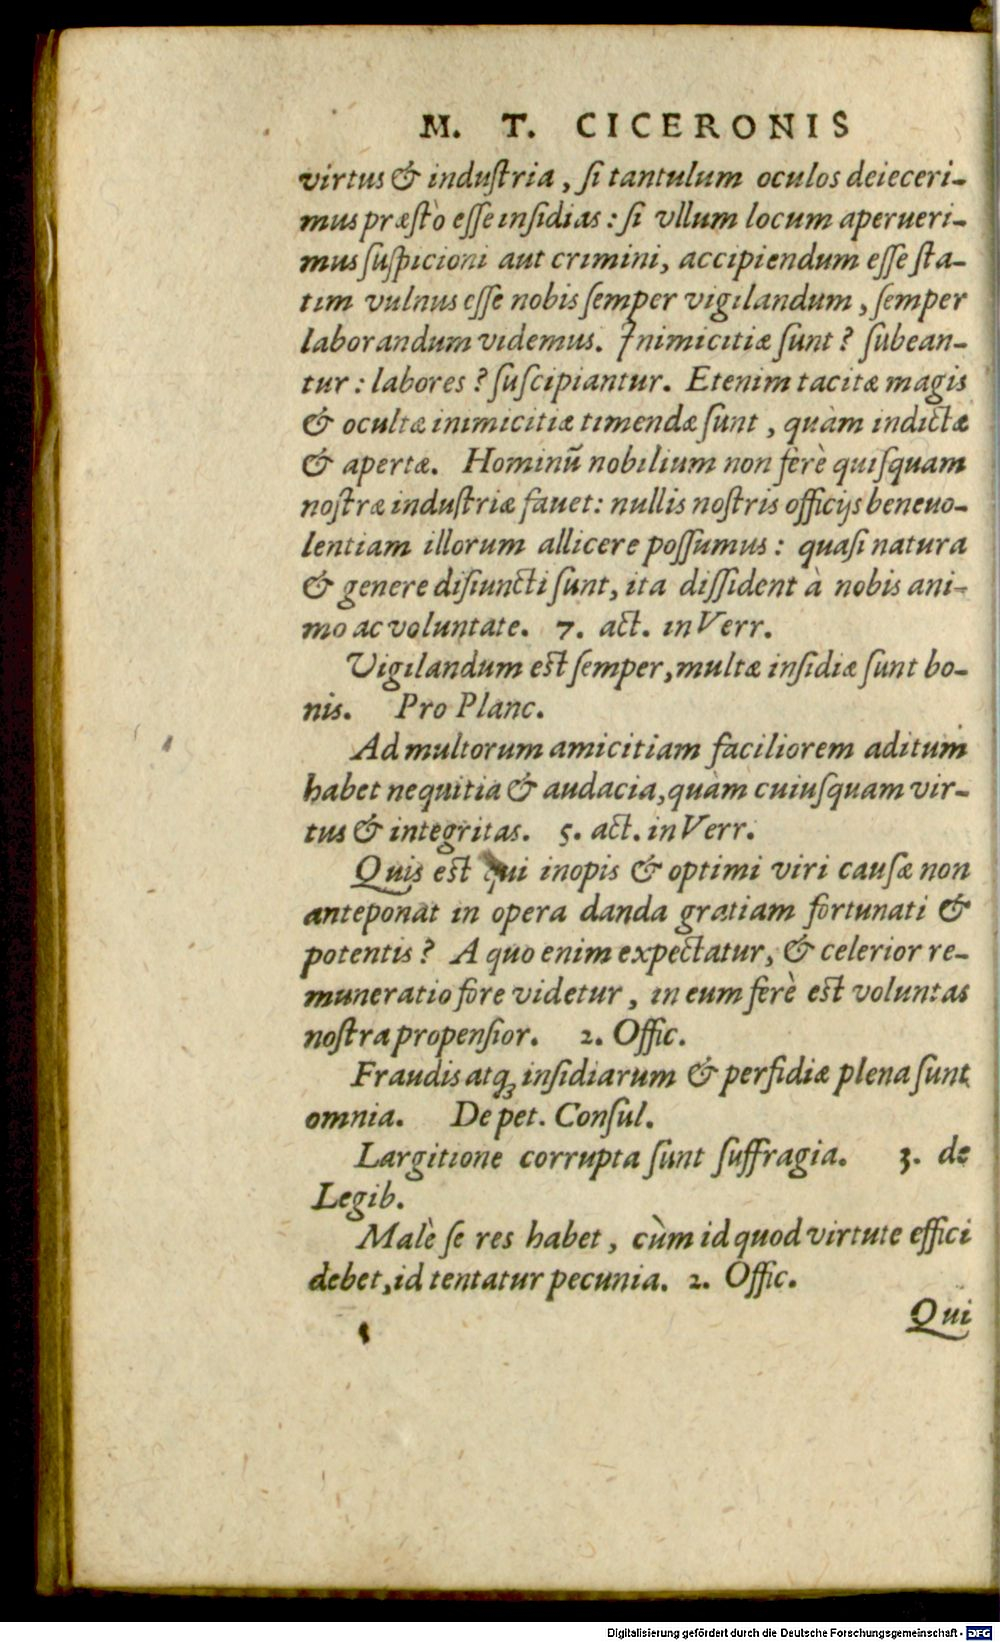 M. T. CICERONIS
virtus & induſtria, ſi tantulum oculos deieceri-
mus præſtò eſſe inſidias: ſi vllum locum aperueri-
mus ſuſpicioni aut crimini, accipiendum eſſe ſta-
tim vulnus eſſe nobis ſemper vigilandum, ſemper
laborandum videmus. Inimicitiæ ſunt? ſubean-
tur: labores? ſuſcipiantur. Etenim tacitæ magis
& ocultæ inimicitiæ timendæ ſunt, quàm indictæ
& apertæ. Hominū nobilium non ferè quiſquam
noſtræ induſtriæ fauet: nullis noſtris officijs beneuo-
lentiam illorum allicere poſſumus: quaſi natura
& genere diſiuncti ſunt, ita diſſident à nobis ani-
mo ac voluntate. 7. act. in Verr.
Vigilandum eſt ſemper, multæ inſidiæ ſunt bo-
nis. Pro Planc.
Ad multorum amicitiam faciliorem aditum
habet nequitia & audacia, quàm cuiuſquam vir-
tus & integritas. 5. act. in Verr.
Quis eſt qui inopis & optimi viri cauſæ non
anteponat in opera danda gratiam fortunati &
potentis? A quo enim expectatur, & celerior re-
muneratio fore videtur, in eum ferè eſt voluntas
noſtra propenſior. 2. Offic.
Fraudis atq; inſidiarum & perfidiæ plena ſunt
omnia. De pet. Conſul.
Largitione corrupta ſunt ſuffragia. 3. de
Legib.
Malè ſe res habet, cùm id quod virtute effici
debet, id tentatur pecunia. 2. Offic.
Qui
Digitalisierung gefördert durch die Deutsche Forschungsgemeinschaft - DFG